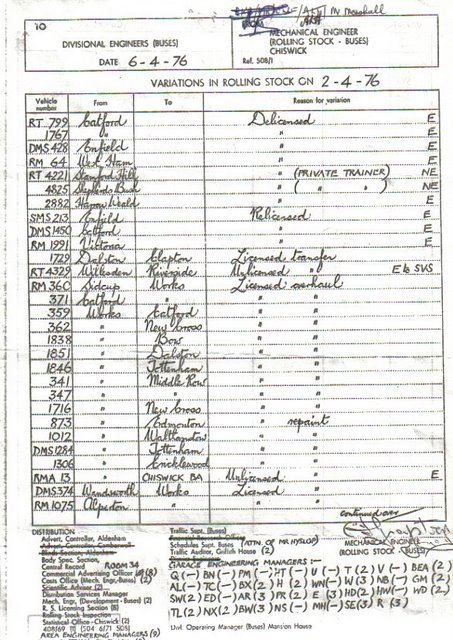 10
Mr Marshall
DIVISIONAL ENGINEERS (BUSES)
DATE 6-4-76
MECHANICAL ENGINEER
(ROLLING STOCK - BUSES)
CHISWICK
Ref. 508/1
VARIATIONS IN ROLLING STOCK ON 2-4-76
Vehicle number From To Reason for variation
RT 799 Catford Delicensed E
1767 " " E
DMS 428 Enfield " E
RM 64 West Ham " E
RT 4221 Stamford Hill " (PRIVATE TRAINER) NE
4825 Shepherds Bush " ( " " ) NE
2882 Harrow Weald " E
SMS 213 Enfield Relicensed E
DMS 1450 Catford " E
RM 1991 Victoria " E
1729 Dalston Clapton Licensed transfer
RT 4329 Willesden Riverside Unlicensed " E to SVS
RM 360 Sidcup Works Licensed overhaul
371 Catford " " "
359 Works Catford " "
362 " New Cross " "
1838 " Bow " "
1851 " Dalston " "
1846 " Tottenham " "
341 " Middle Row " "
347 " " " "
1716 " New Cross " "
873 " Edmonton " repaint
1012 " Walthamstow " "
DMS 1284 " Tottenham " "
1306 " Cricklewood " "
RMA 13 " CHISWICK BA Unlicensed " E
DMS 374 Wandsworth Works Licensed "
RM 1075 Alperton " " "
continued over
DISTRIBUTION
Advert. Controller, Aldenham
Advert. Controller, Camberwell
Body Spec. Section,
Central Record ROOM 34
Commercial Advertising Officer (8)
Costs Office (Mech. Engr.-Buses) (2)
Scientific Adviser
Distribution Services Manager
Mech. Engr. (Development - Buses) (2)
R. S. Licensing Section (B)
Rolling Stock Inspection
AREA ENGINEERING MANAGERS (9)
Traffic Supt. (Buses)
Schedules Supt. Buses (ATTN. OF MR HYSLOP)
Traffic Auditor, Griffith House (2)
MECHANICAL ENGINEER
(ROLLING STOCK - BUSES)
GARAGE ENGINEERING MANAGERS:-
Q(-) BN(-) PM(-) HT(-) U(-) T(2) V(-) BEA(2)
AL(-) TC(-) BX(2) H(2) WN(-) W(3) NB(-) GM(2)
SW(2) ED(-) AR(3) PR(2) E(3) HD(2) HW(-) WD(2)
TL(2) NX(2) BW(3) NS(-) MH(-) SE(3) R(3)
Divl. Operating Manager (Buses) Mansion House